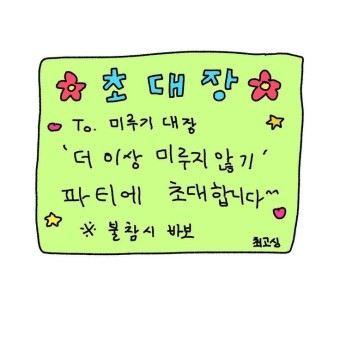 초대장
To. 미루기 대장
'더 이상 미루지 않기'
파티에 초대합니다~~
※ 불참시 바보
최고심